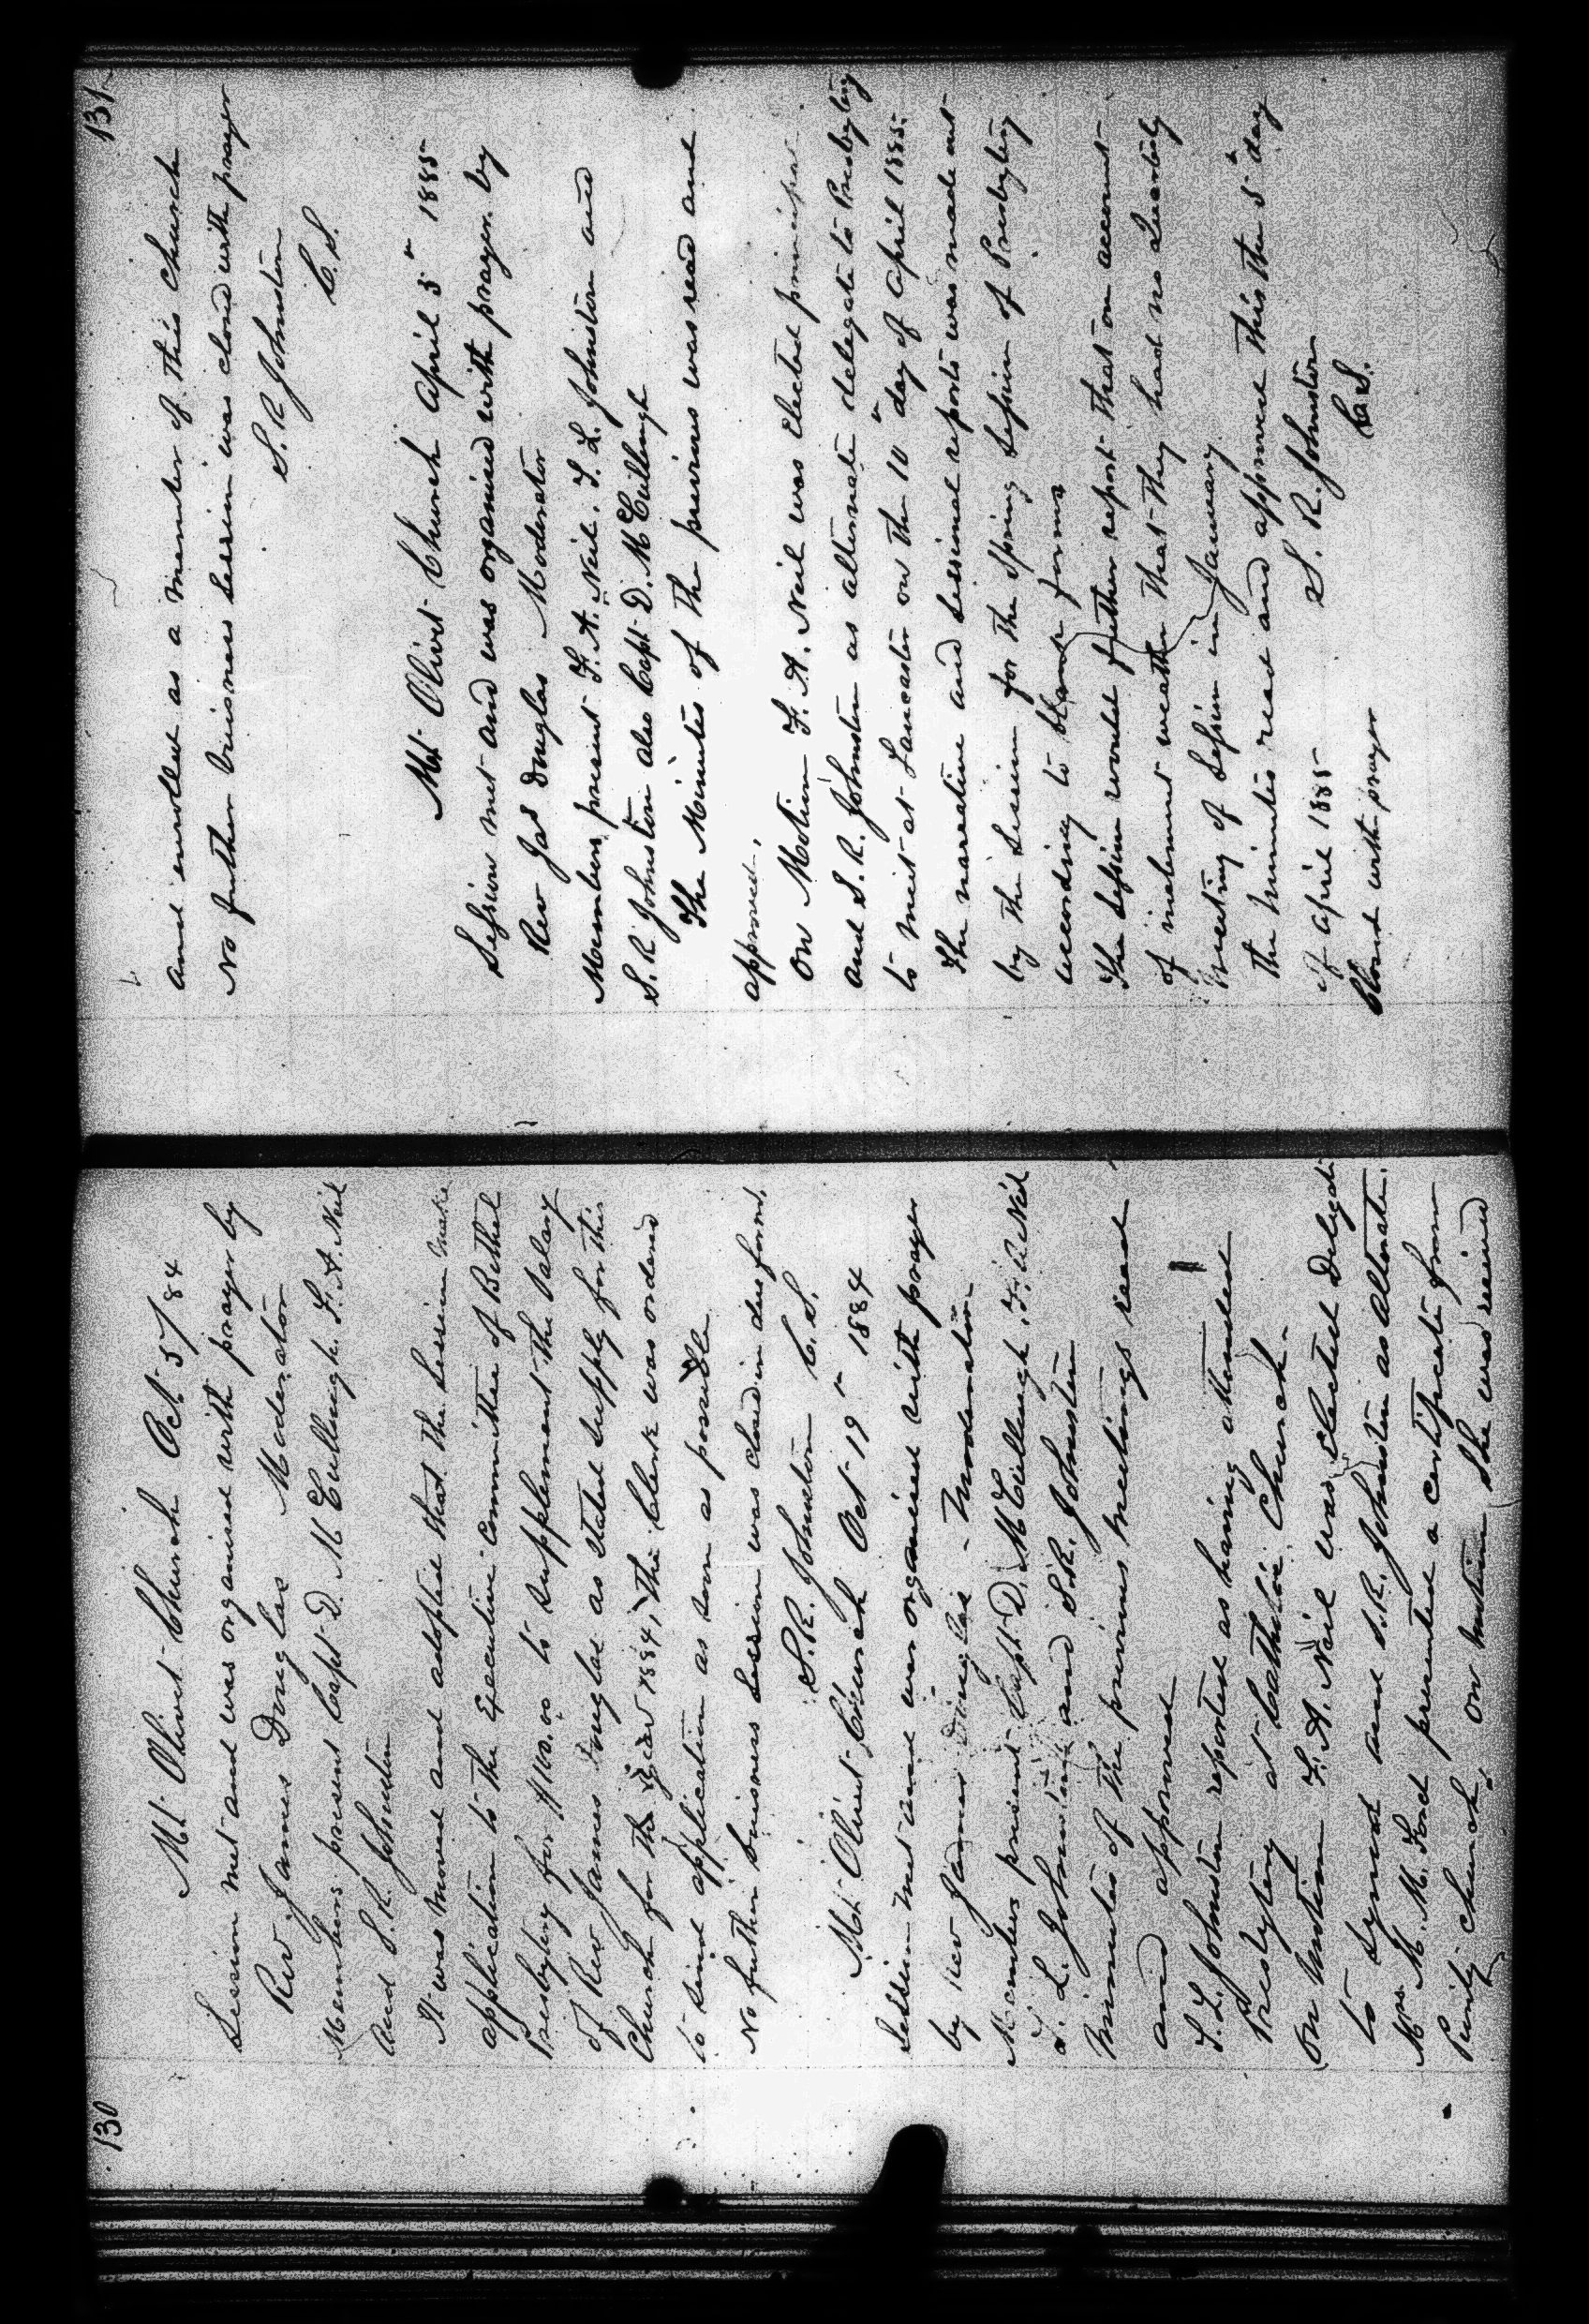 130
Mt. Olivet Church Oct 5/84
Session met and was organised with prayer by
Rev. James Douglas Moderator
Members present Capt D. McCullough. F. A. Neil
and S. R. Johnston
It was moved and adopted that the Session make
application to the Executive Committee of Bethel
Presbytery for $100.00 to supplement the Salary
of Rev James Douglas as stated supply for this
Church for the year 1884, The Clerk was ordered
to send application as soon as possible
No further buisness session was closed in due form.
S. R. Johnston C. S.
Mt. Olivet Church Oct 19th 1884
Session met and was organised with prayer
by Rev James Douglas - Moderator
Members present Capt D. McCullough, F. A Neil
T. L. Johnston and S. R. Johnston
Minutes of the previous meetings read
and approved
T. L. Johnston reported as having attended
Presbytery at Catholic Church.
On Motion F. A. Neil was elected Delegate
to Synod and S. R. Johnston as alternate.
Mrs M. M. Ford presented a certificate from
Purity church, on motion she was received
131
and enrolled as a member of this church
No further buisness session was closed with prayer
S. R Johnston
C. S.
Mt. Olivet Church April 5th 1885
Session met and was organised with prayer. by
Rev Jas Douglas Moderator
Members present F. A. Neil. T. L. Johnston and
S. R. Johnston also Capt D. McCullough
The Minutes of the previous was read and
approved.
On Motion F. A. Neil was elected principal
and S. R. Johnston as alternate delegate to Presbytery
to meet at Lancaster on the 10th day of April 1885.
The narrative and sessional reports was made out
by the Session for the Spring Session of Presbytery
according to blank forms
The Session would further report that on account
of inclement weather that they had no Quarterly
Meeting of Session in January
the minutes read and approved this the 5th day
of April 1885 S. R. Johnston
Closed with prayer C. S.